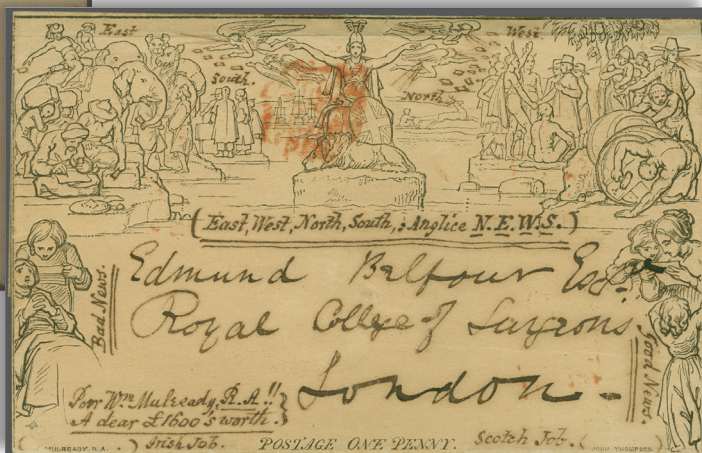 East
West
South.
North
(East, West, North, South, ; Anglice N.E.W.S.)
Bad News.
Edmund Balfour Esqr
Royal College of Surgeons
London.
Good News.
Poor Wm Mulready, R.A!!
A dear £1600's worth.
MULREADY. R.A.
( ) Irish Job.
POSTAGE ONE PENNY.
Scotch Job. ( )
JOHN THOMPSON.